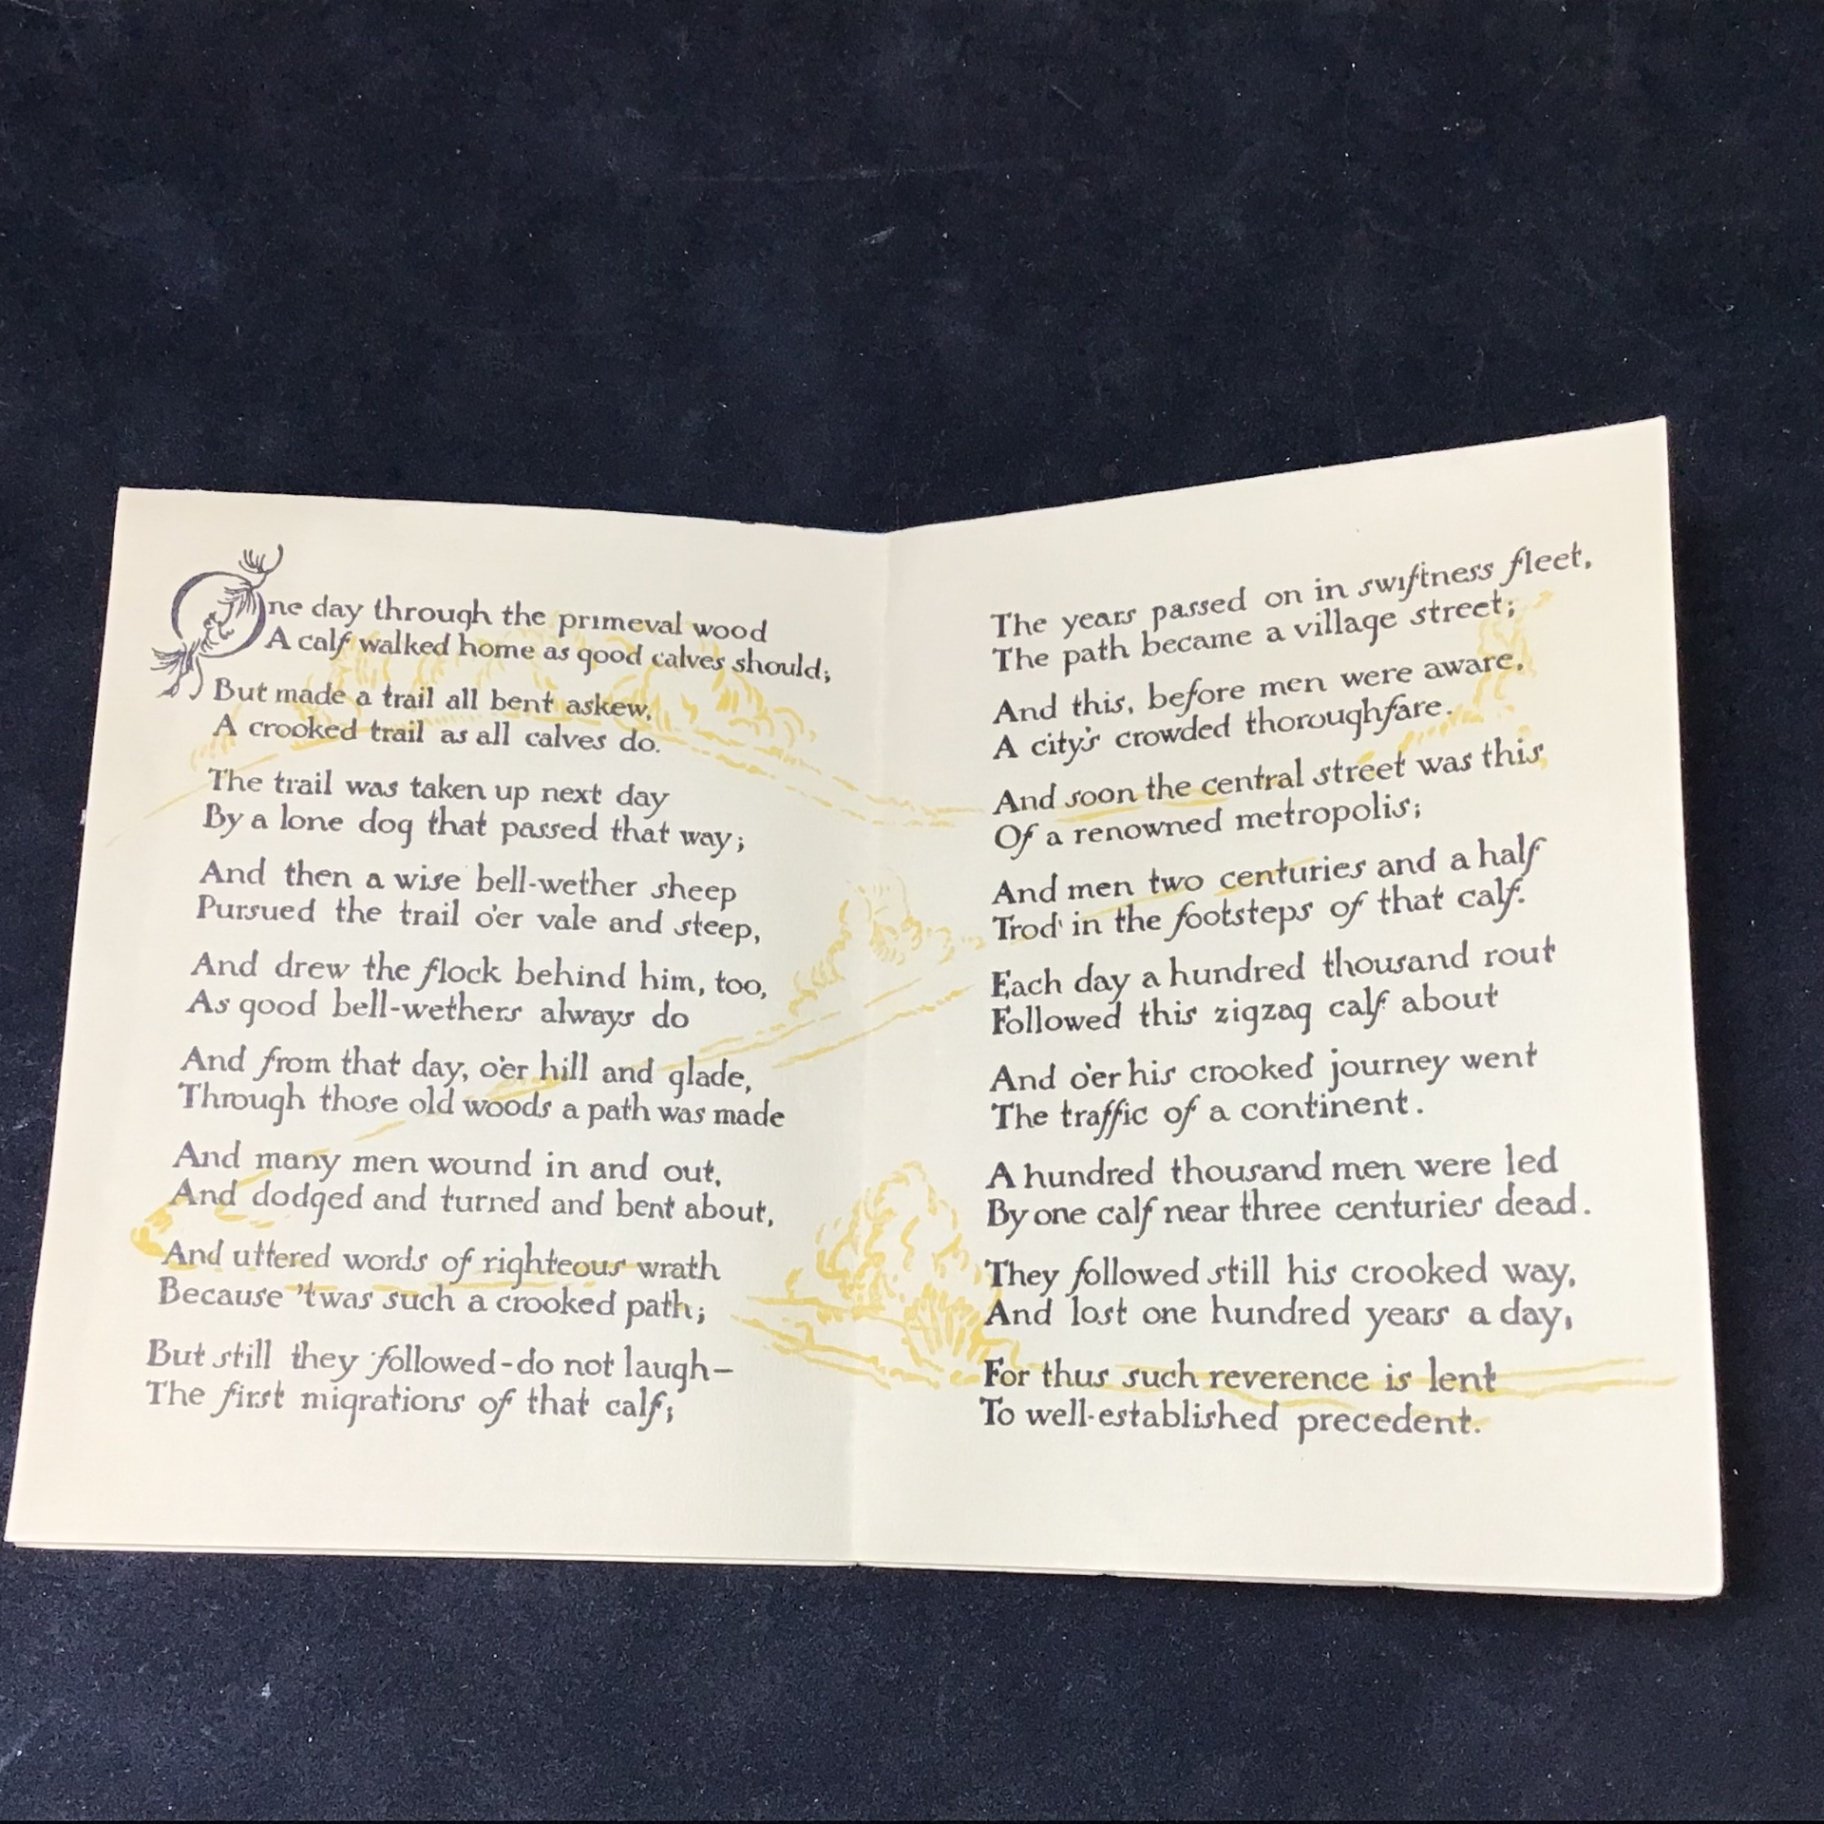 One day through the primeval wood
A calf walked home as good calves should;
But made a trail all bent askew,
A crooked trail as all calves do.
The trail was taken up next day
By a lone dog that passed that way;
And then a wise bell-wether sheep
Pursued the trail o'er vale and steep,
And drew the flock behind him, too,
As good bell-wethers always do
And from that day, o'er hill and glade,
Through those old woods a path was made
And many men wound in and out,
And dodged and turned and bent about,
And uttered words of righteous wrath
Because 'twas such a crooked path;
But still they followed-do not laugh-
The first migrations of that calf;
The years passed on in swiftness fleet,
The path became a village street;
And this, before men were aware,
A city's crowded thoroughfare.
And soon the central street was this
Of a renowned metropolis;
And men two centuries and a half
Trod in the footsteps of that calf.
Each day a hundred thousand rout
Followed this zigzag calf about
And o'er his crooked journey went
The traffic of a continent.
A hundred thousand men were led
By one calf near three centuries dead.
They followed still his crooked way,
And lost one hundred years a day,
For thus such reverence is lent
To well-established precedent.